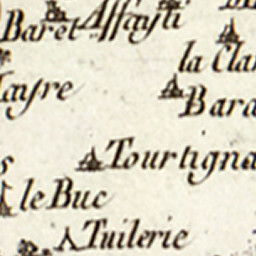 Baret Assayti
la Cla
ayre
Bara
Tourtigna
s
le Buc
Tuilerie